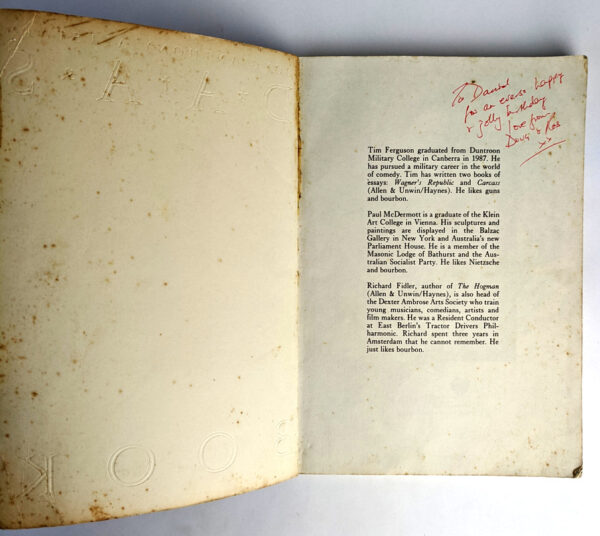 To Daniel
for an ever so happy
& jolly birthday
love from
Doug & Rob
xx
Tim Ferguson graduated from Duntroon
Military College in Canberra in 1987. He
has pursued a military career in the world
of comedy. Tim has written two books of
essays: Wagner's Republic and Carcass
(Allen & Unwin/Haynes). He likes guns
and bourbon.
Paul McDermott is a graduate of the Klein
Art College in Vienna. His sculptures and
paintings are displayed in the Balzac
Gallery in New York and Australia's new
Parliament House. He is a member of the
Masonic Lodge of Bathurst and the Aus-
tralian Socialist Party. He likes Nietzsche
and bourbon.
Richard Fidler, author of The Hogman
(Allen & Unwin/Haynes), is also head of
the Dexter Ambrose Arts Society who train
young musicians, comedians, artists and
film makers. He was a Resident Conductor
at East Berlin's Tractor Drivers Phil-
harmonic. Richard spent three years in
Amsterdam that he cannot remember. He
just likes bourbon.